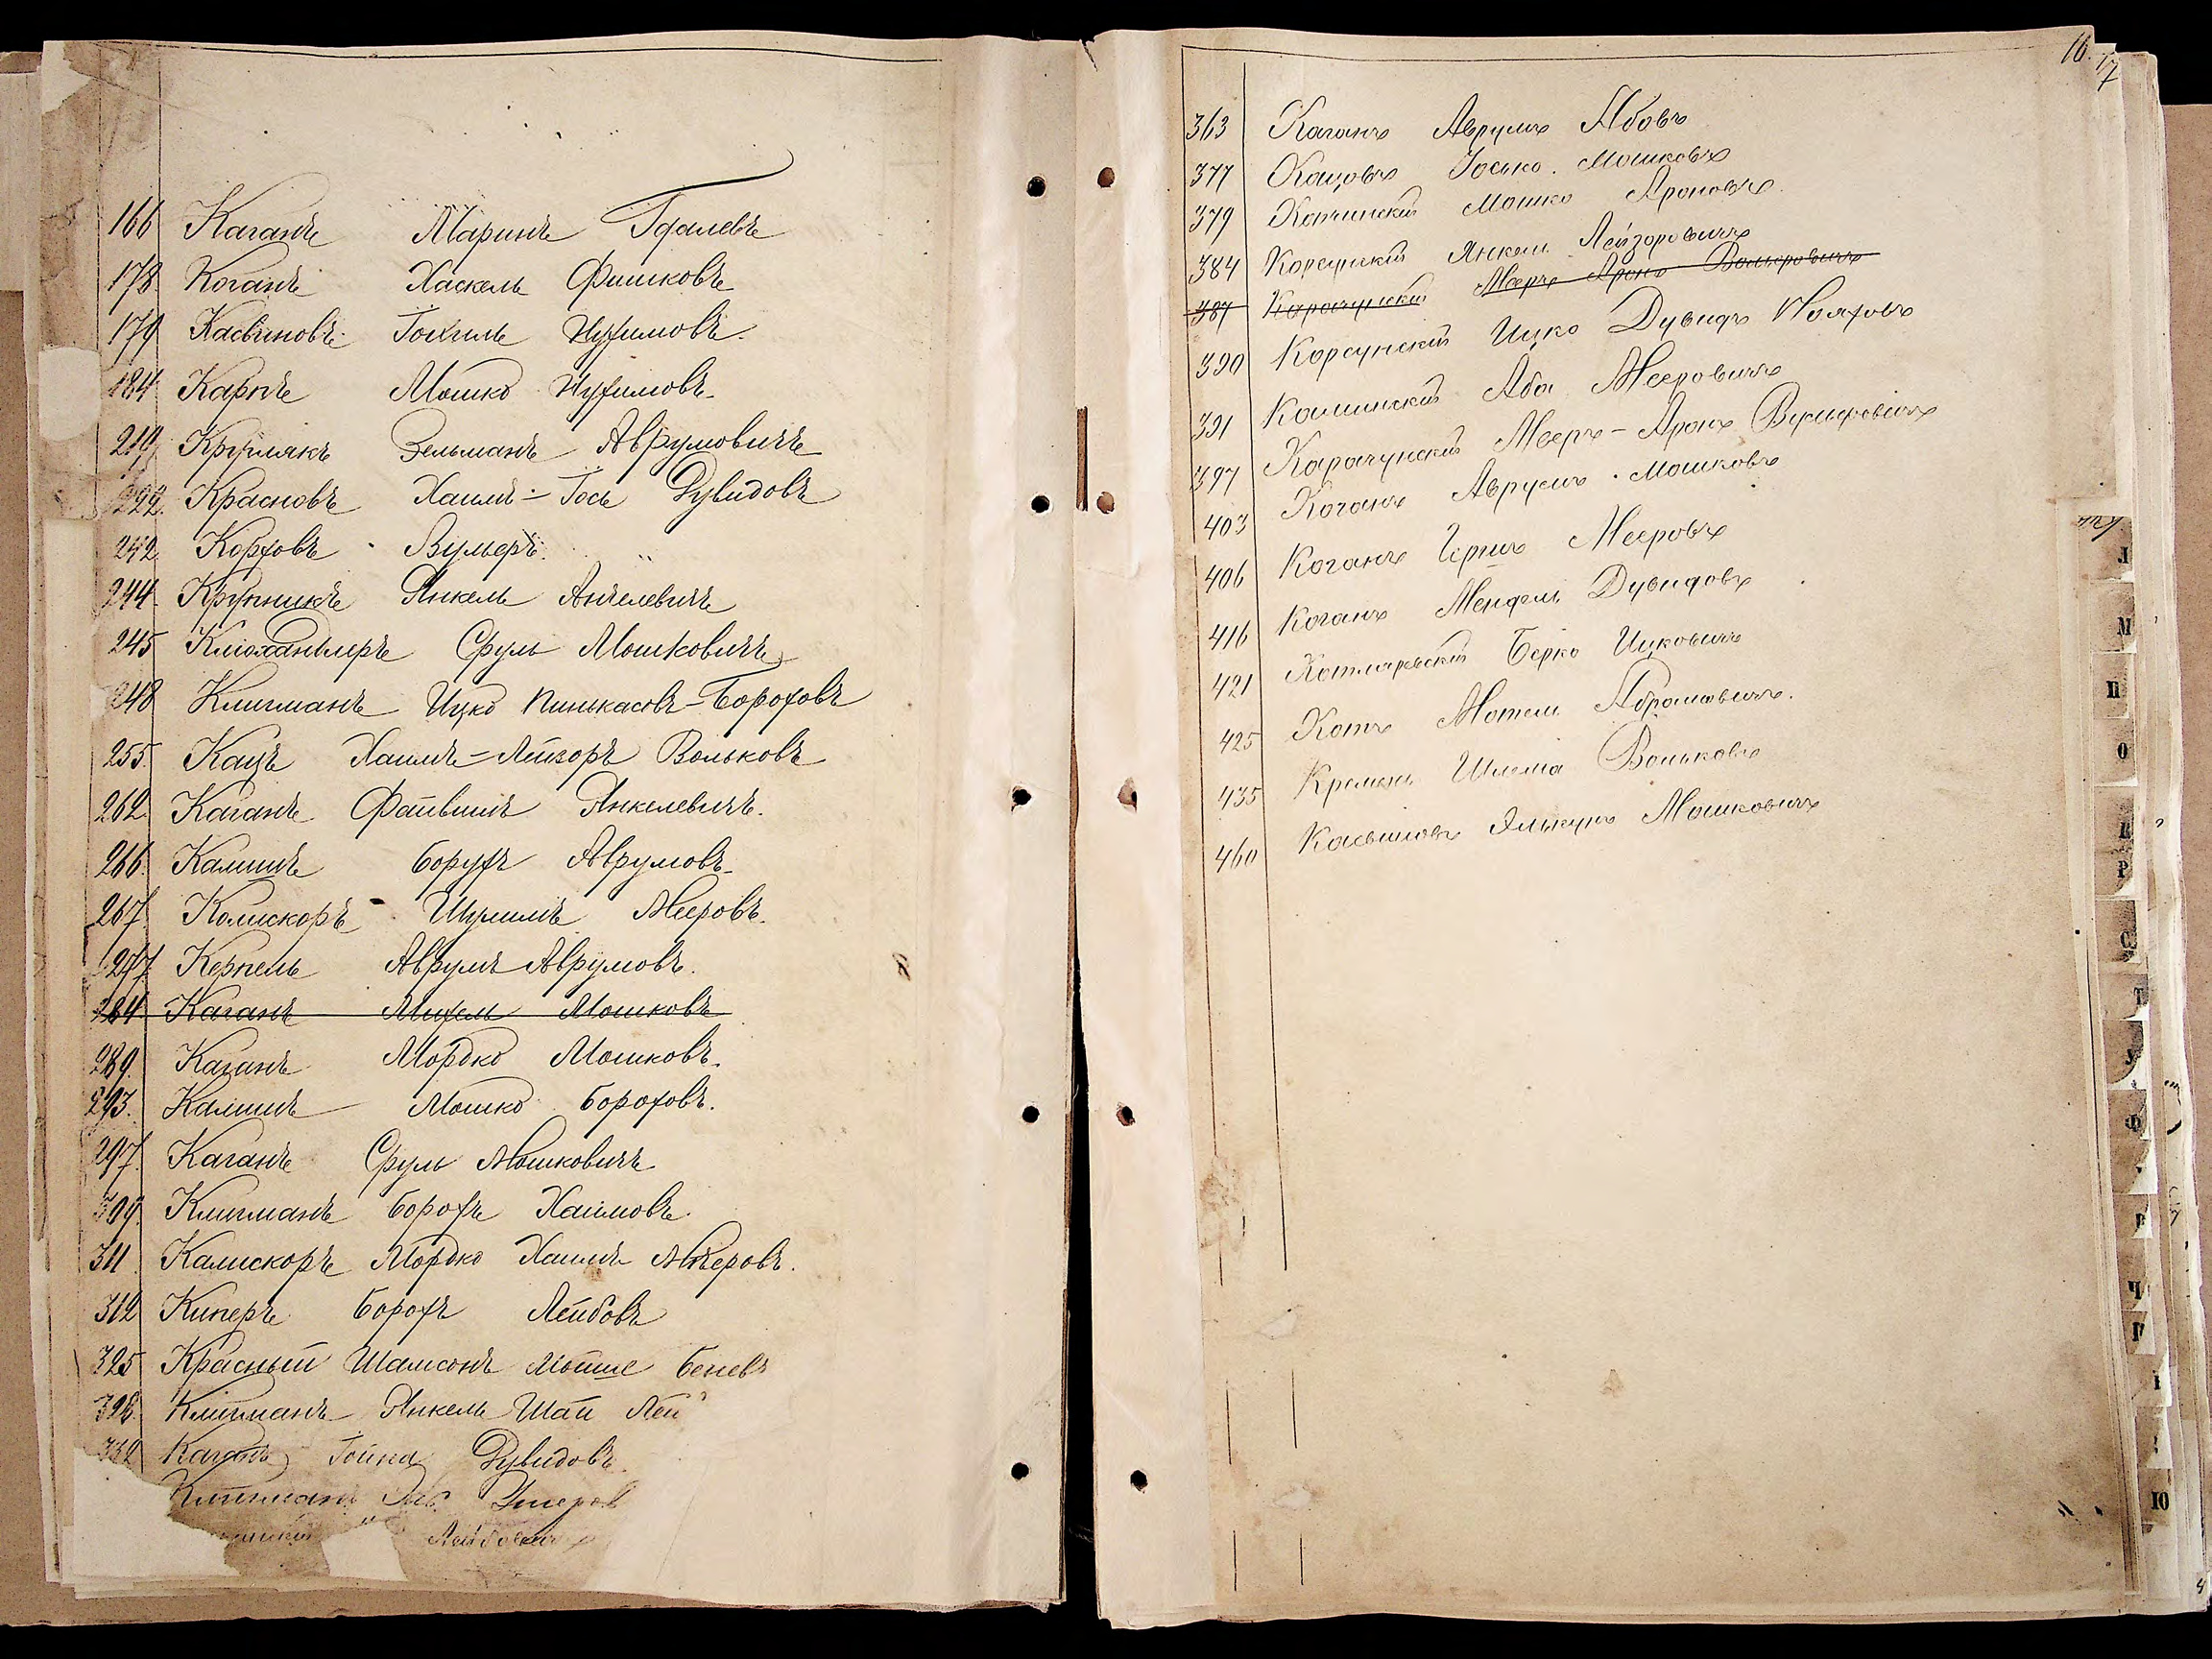 166 Каганъ Маринъ Гдалевъ
178. Коганъ Хаскель Фишковъ
179 Касвиновъ Іохиль Нухимовъ.
184 Карпъ Мошко Нухимовъ.
219 Зельманъ Аврумовичъ
222. Красновъ Хаимъ-Іось Дувидовъ
242 Корховъ Вульфъ.
244. Крупникъ Янкель Анчелевичъ
245 Сруль Мошковичъ
248 Клигманъ Ицко Пинькасовъ-Борховъ
255. Кацъ Хаимъ-Лейзоръ Вольковъ
262. Каганъ Файвишъ Янкелевичъ.
266. Калишъ Борухъ Аврумовъ.
267. Колискоръ Шулимъ Мееровъ.
277. Керпель Аврумъ Аврумовъ.
284. Каганъ Михель Мошковъ
289. Каганъ Мордко Мошковъ.
293. Калишъ Мошко Бороховъ.
297. Каганъ Сруль Мошковичъ
309. Клигманъ Борохъ Хаимовъ.
311. Калискоръ Мордко Хаимъ Мееровъ.
312 Киперъ Борохъ Лейбовъ
325 Красный Шамсонъ Мойше Беневъ
328. Клигманъ Янкель Шая Лей
332 Каганъ Іойна Дувидовъ.
Клигманъ
Лейбовичъ
16. 17
363 Каганъ Аврумъ Абовъ
377 Кацовъ Іосько. Мошковъ
379 Мошко Ароновъ.
384 Корсунскій Янкель Лейзоровичъ
387 Карачунскій Мееръ Аронъ Вольфовичъ
390 Корсунскій Ицко Дувидъ Нояховъ
391 Каминскій Аба Мееровичъ
397 Карачунскій Мееръ-Аронъ Вульфовичъ
403 Коганъ Аврумъ. Мошковъ
406 Коганъ Гершъ Мееровъ
416 Коганъ Мендель Дувидовъ
421 Котляревскій Берко Ицковичъ
425 Котъ Мотель Абрамовичъ.
435 Кремень Шлема Вольковъ
460 Касвиновъ Элькунъ Мошковичъ
Л
М
Н
О
П
Р
С
Т
У
Ф
Ч
Ю